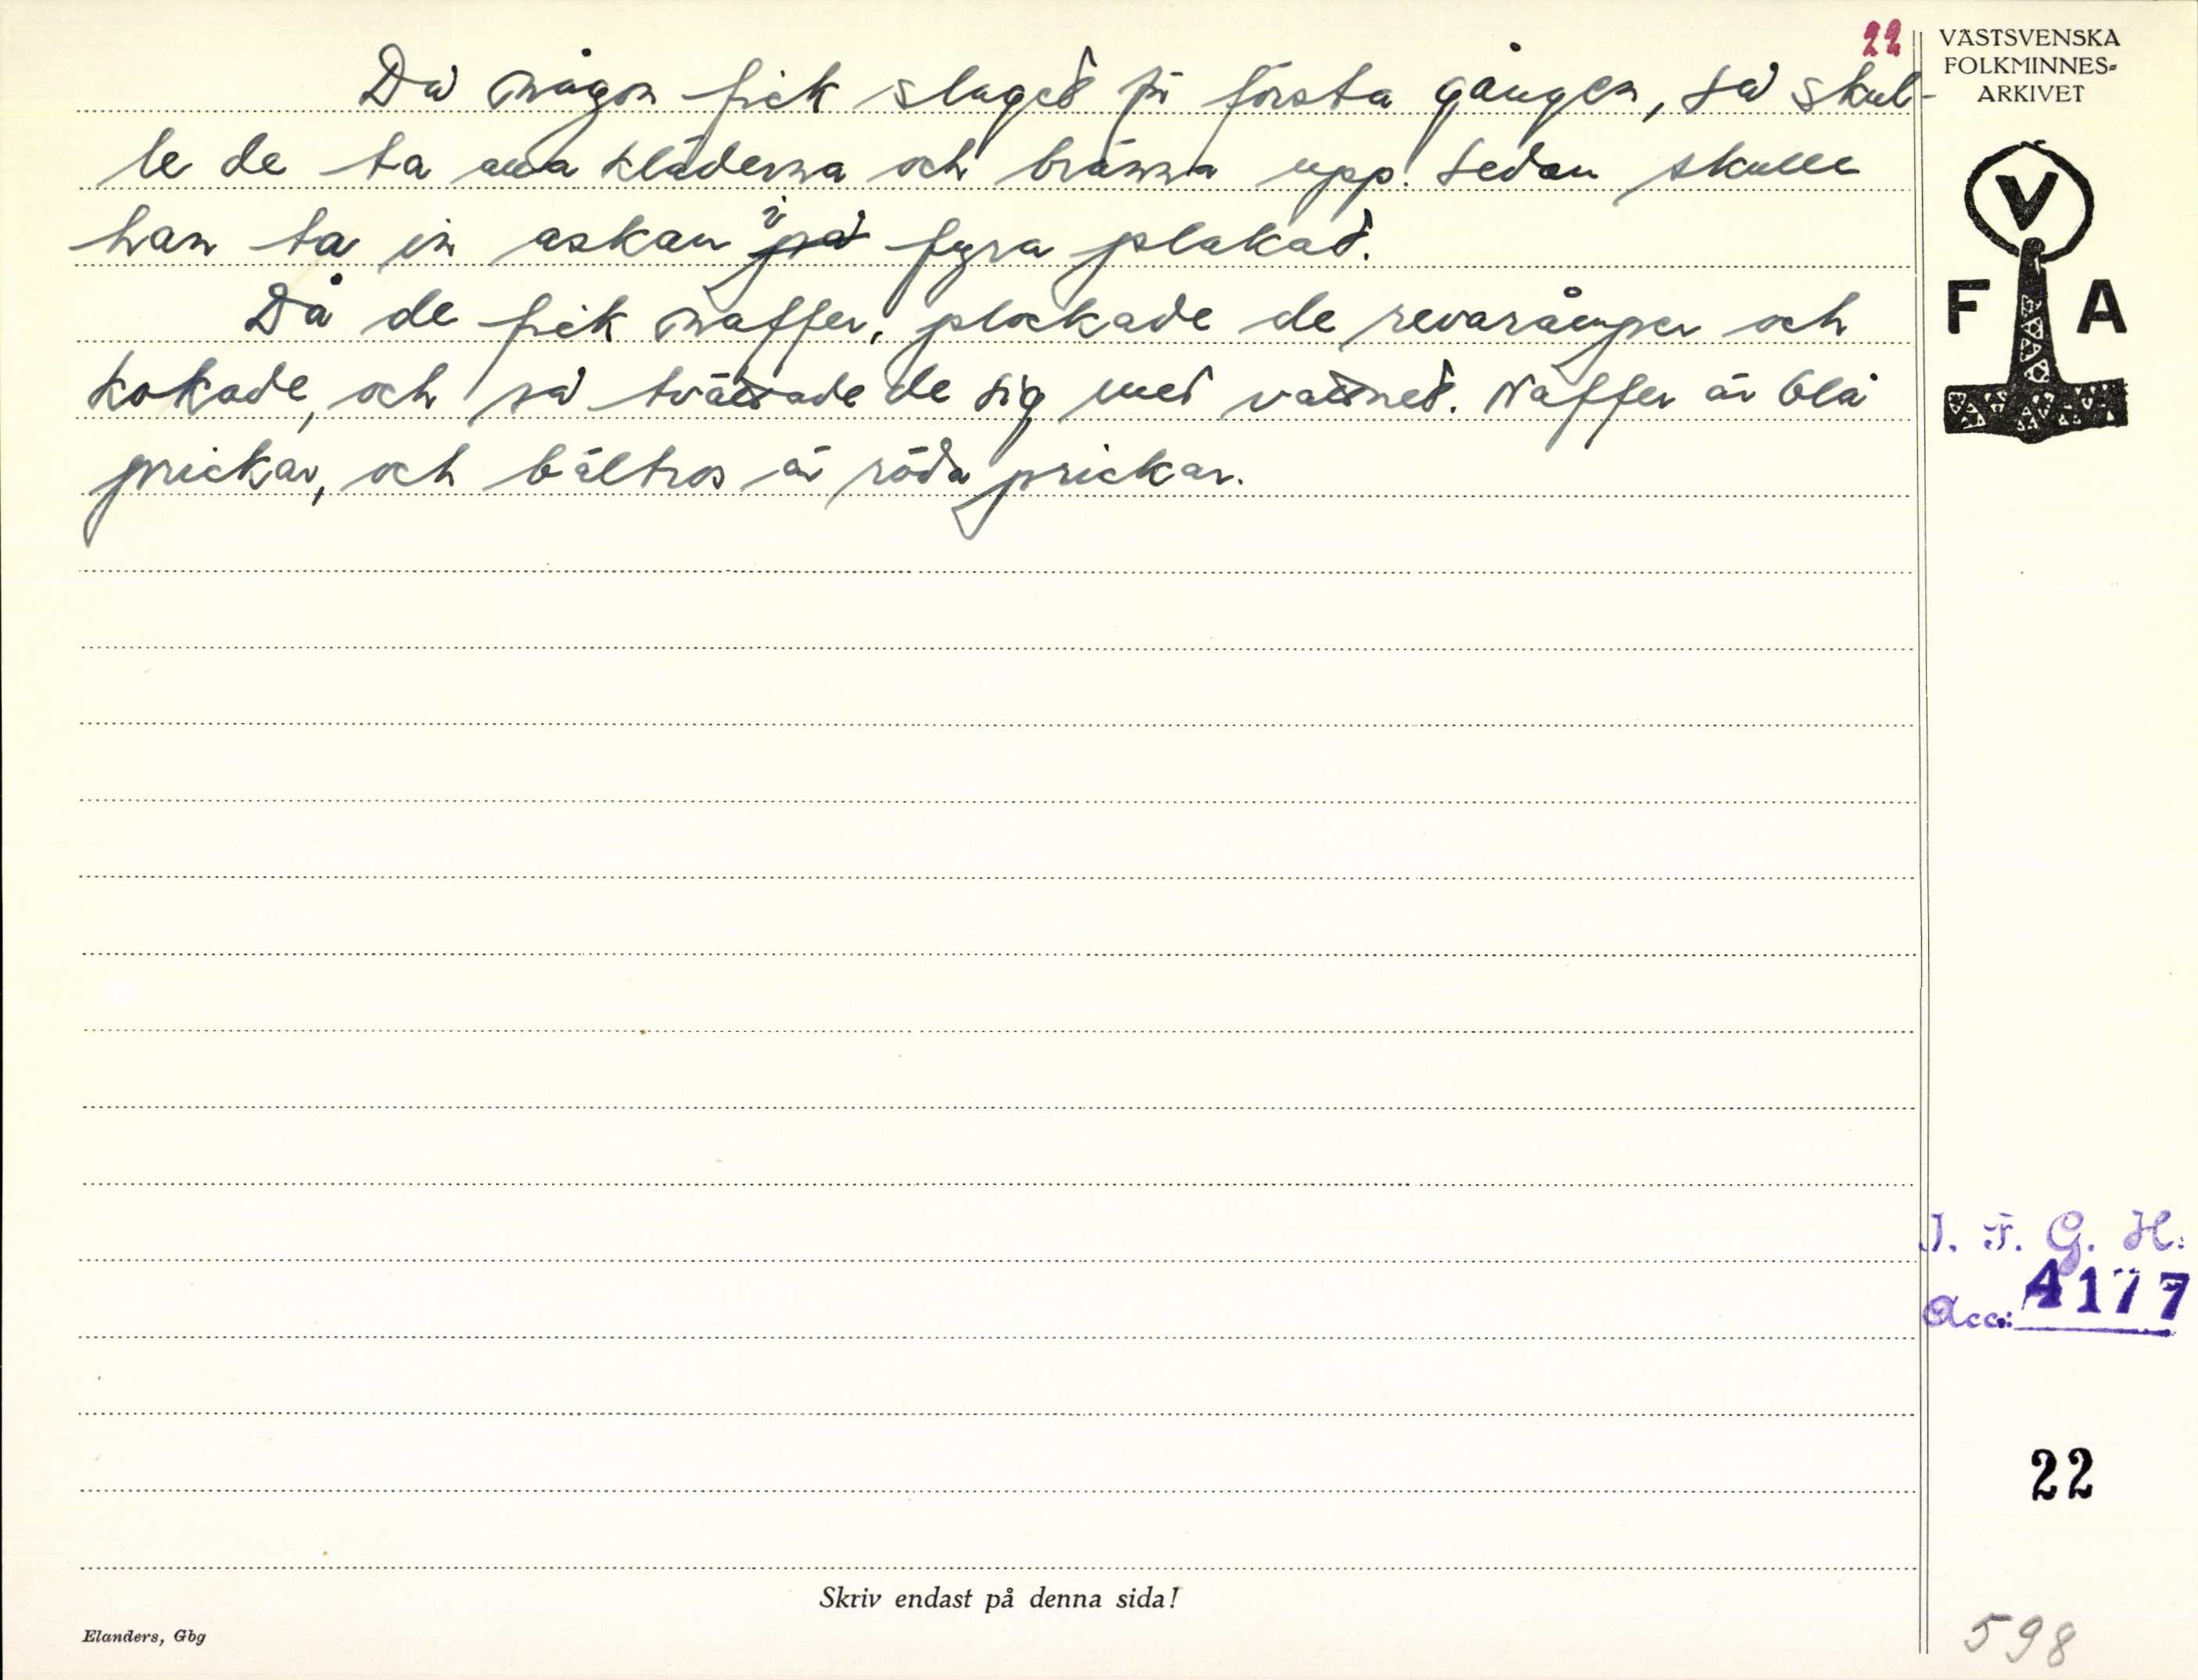 22
Då någon fick slaget på första gången, så skul-
le de ta alla kläderna och bränna upp. Sedan skulle
han ta in askan i på fyra plakat.
Då de fick naffer, plockade de och
kokade, och så tvättade de sig med vattnet. Naffer är blå
prickar, och bältros är röda prickar.
VÄSTSVENSKA
FOLKMINNES-
ARKIVET
V
F A
I. F. G. H.
Acc: 4177
22
598
Skriv endast på denna sida!
Elanders, Gbg